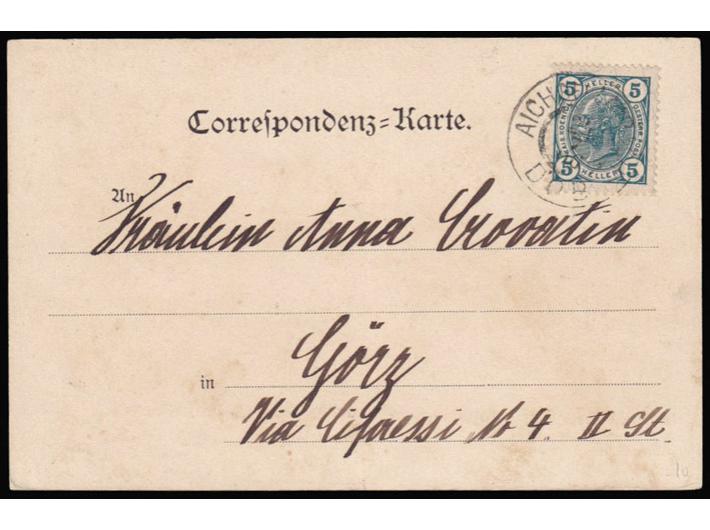 Correſpondenz=Karte.
5 HELLER 5
5 HELLER 5
AICH
An Fräulein Anna Crovatin
in Görz
Via N 4. II St